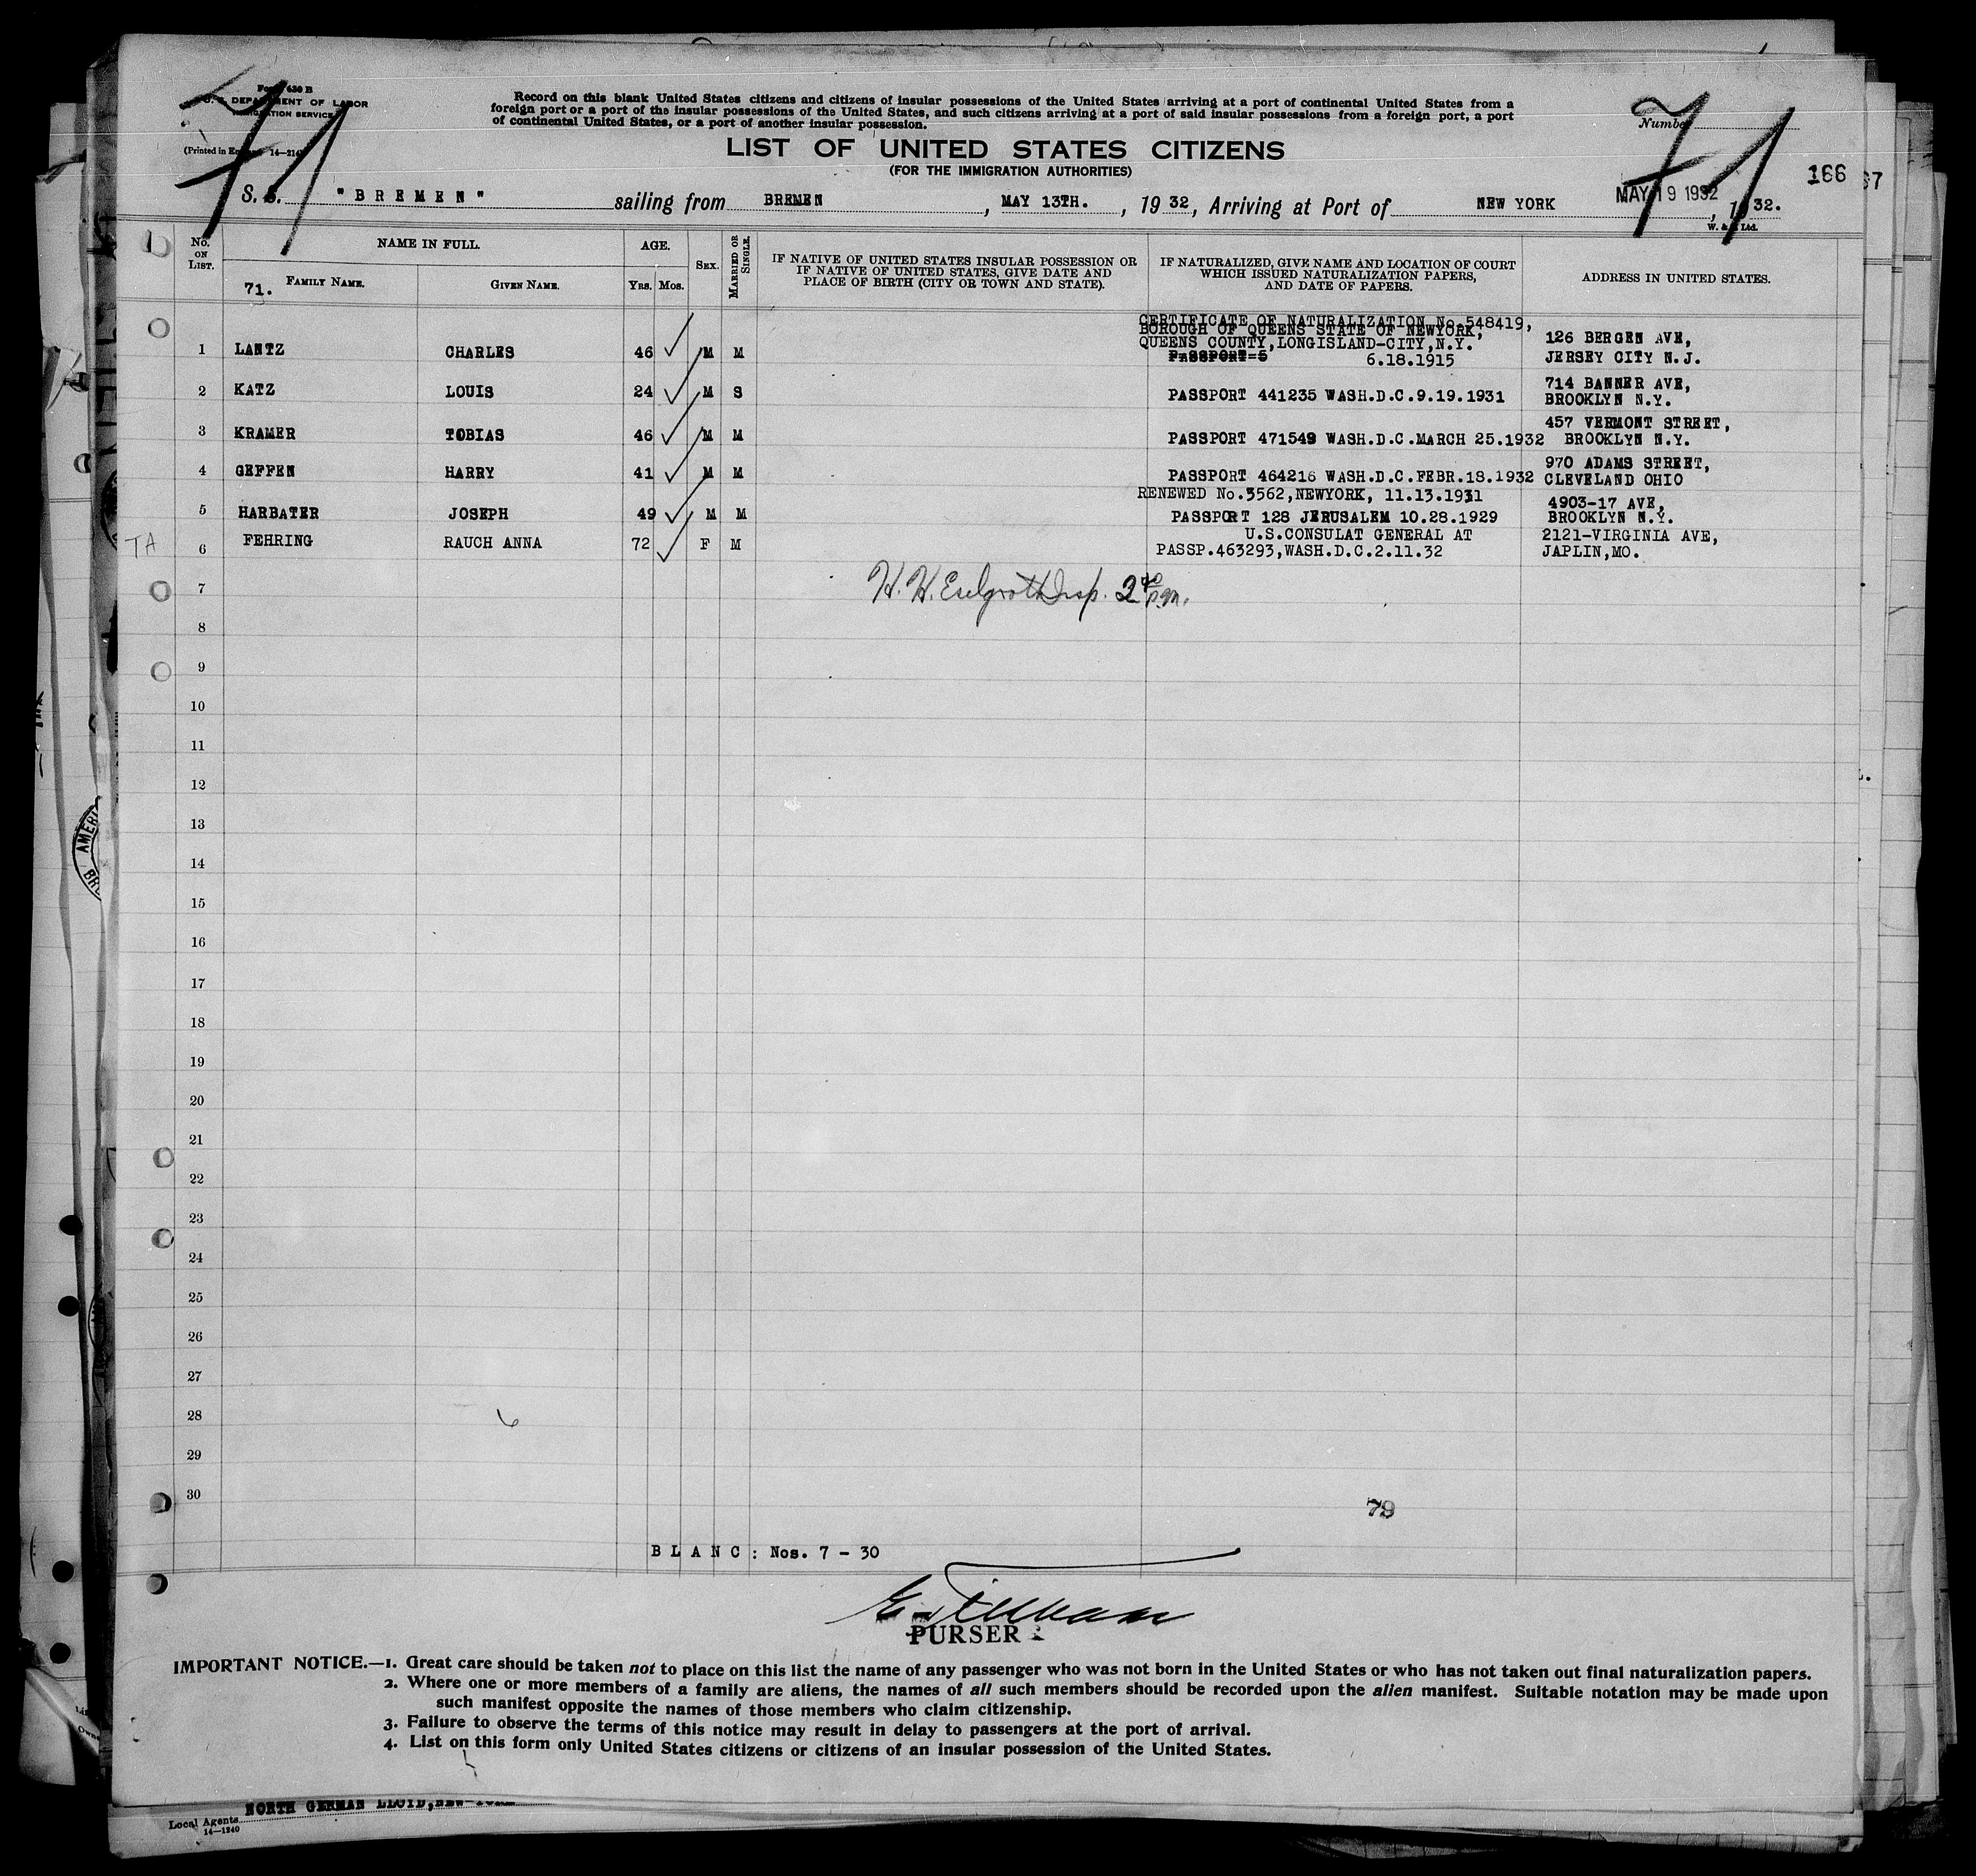 Form 630 B
U. S. DEPARTMENT OF LABOR
IMMIGRATION SERVICE
(Printed in England 14—214
Record on this blank United States citizens and citizens of insular possessions of the United States arriving at a port of continental United States from a
foreign port or a port of the insular possessions of the United States, and such citizens arriving at a port of said insular possessions from a foreign port, a port
of continental United States, or a port of another insular possession.
71
71
Number
LIST OF UNITED STATES CITIZENS
(FOR THE IMMIGRATION AUTHORITIES)
166
67
MAY 19 1932
S. S. "BREMEN" sailing from BREMEN, MAY 13TH., 1932, Arriving at Port of NEW YORK, 1932.
W. & S Ltd.
No. ON LIST.
NAME IN FULL.
71. FAMILY NAME.
GIVEN NAME.
AGE.
Yrs. Mos.
SEX.
MARRIED OR SINGLE.
IF NATIVE OF UNITED STATES INSULAR POSSESSION OR
IF NATIVE OF UNITED STATES, GIVE DATE AND
PLACE OF BIRTH (CITY OR TOWN AND STATE).
IF NATURALIZED, GIVE NAME AND LOCATION OF COURT
WHICH ISSUED NATURALIZATION PAPERS,
AND DATE OF PAPERS.
ADDRESS IN UNITED STATES.
CERTIFICATE OF NATURALIZATION No.548419,
BOROUGH OF QUEENS STATE OF NEWYORK,
QUEENS COUNTY,LONGISLAND-CITY,N.Y.
1 LANTZ CHARLES 46 M M PASSPORT=5 6.18.1915 126 BERGEN AVE,
JERSEY CITY N.J.
2 KATZ LOUIS 24 M S PASSPORT 441235 WASH.D.C.9.19.1931 714 BANNER AVE,
BROOKLYN N.Y.
3 KRAMER TOBIAS 46 M M PASSPORT 471549 WASH.D.C.MARCH 25.1932 457 VERMONT STREET,
BROOKLYN N.Y.
4 GEFFEN HARRY 41 M M PASSPORT 464216 WASH.D.C.FEBR.18.1932 970 ADAMS STREET,
CLEVELAND OHIO
RENEWED No.3562,NEWYORK, 11.13.1931
5 HARBATER JOSEPH 49 M M PASSPORT 128 JERUSALEM 10.28.1929 4903-17 AVE,
BROOKLYN N.Y.
U.S.CONSULAT GENERAL AT
TA 6 FEHRING RAUCH ANNA 72 F M PASSP.463293,WASH.D.C.2.11.32 2121-VIRGINIA AVE,
JAPLIN,MO.
7 H. H. Insp. p.m.
8
9
10
11
12
13
14
15
16
17
18
19
20
21
22
23
24
25
26
27
28 6
29
30
79
BLANC: Nos. 7 - 30
PURSER
IMPORTANT NOTICE.—1. Great care should be taken not to place on this list the name of any passenger who was not born in the United States or who has not taken out final naturalization papers.
2. Where one or more members of a family are aliens, the names of all such members should be recorded upon the alien manifest. Suitable notation may be made upon
such manifest opposite the names of those members who claim citizenship.
3. Failure to observe the terms of this notice may result in delay to passengers at the port of arrival.
4. List on this form only United States citizens or citizens of an insular possession of the United States.
NORTH GERMAN LLOYD,NEW-YORK
Local Agents
14—1240
AMERI
BR